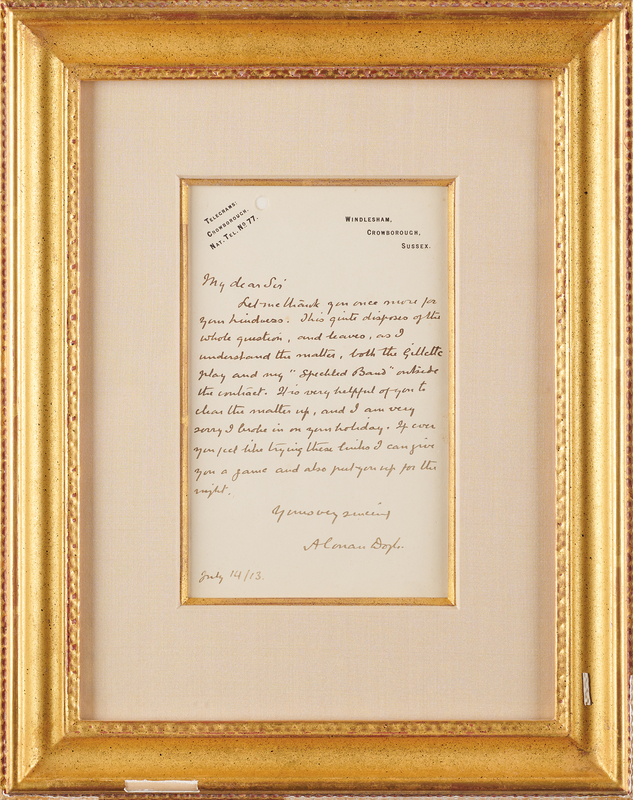 TELEGRAMS:
CROWBOROUGH.
NAT. TEL. NO 77.
WINDLESHAM,
CROWBOROUGH,
SUSSEX.
My dear Sir
Let me thank you once more for
your kindness. This quite disposes of the
whole question, and leaves, as I
understand the matter, both the Gillette
play and my "Speckled Band" outside
the contract. It is very helpful of you to
clear the matter up, and I am very
sorry I broke in on your holiday. If ever
you feel like trying these links I can give
you a game and also put you up for the
night.
Yours very sincerely
A Conan Doyle
July 14/13.